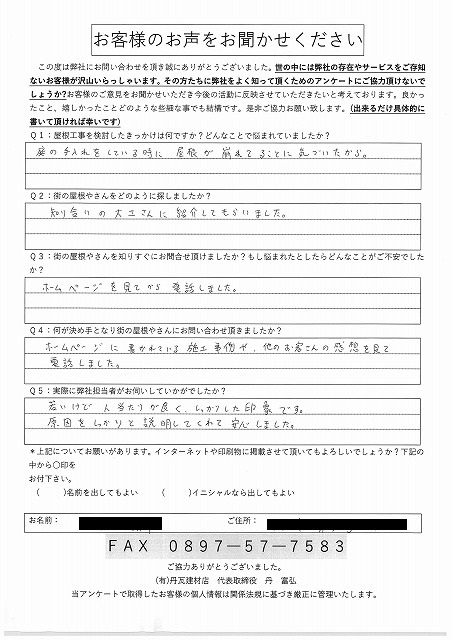 お客様のお声をお聞かせください
この度は弊社にお問い合わせを頂き誠にありがとうございました。世の中には弊社の存在やサービスをご存知
ないお客様が沢山いらっしゃいます。その方たちに弊社をよく知って頂くためのアンケートにご協力頂けないで
しょうか?お客様のご意見をお聞かせいただき今後の活動に反映させていただきたいと考えております。良かっ
たこと、嬉しかったことどのような些細な事でも結構です。是非ご協力お願い致します。(出来るだけ具体的に
書いて頂ければ幸いです)
Q1：屋根工事を検討したきっかけは何ですか？どんなことで悩まれていましたか？
庭の手入れをしている時に 屋根が 崩れてることに気づいたから。
Q2：街の屋根やさんをどのように探しましたか？
知り合いの大工さんに 紹介してもらいました。
Q3：街の屋根やさんを知りすぐにお問合せ頂けましたか？もし悩まれたとしたらどんなことがご不安でした
か？
ホームページを見てから 電話しました。
Q4：何が決め手となり街の屋根やさんにお問い合わせ頂きましたか？
ホームページに 書かれている 施工事例や、他のお客さんの感想を見て
電話しました。
Q5：実際に弊社担当者がお伺いしていかがでしたか？
若いけど 人当たりが良く、しっかりした印象です。
原因をしっかりと説明してくれて 安心しました。
＊上記についてお願いがあります。インターネットや印刷物に掲載させて頂いてもよろしいでしょうか？下記の
中から〇印を
お付下さい。
(　　)名前を出してもよい　　(　　)イニシャルなら出してもよい
お名前：　　ご住所：
FAX 0897-57-7583
ご協力ありがとうございました。
(有)丹瓦建材店　代表取締役　丹　富弘
当アンケートで取得したお客様の個人情報は関係法規に基づき厳正に管理いたします。